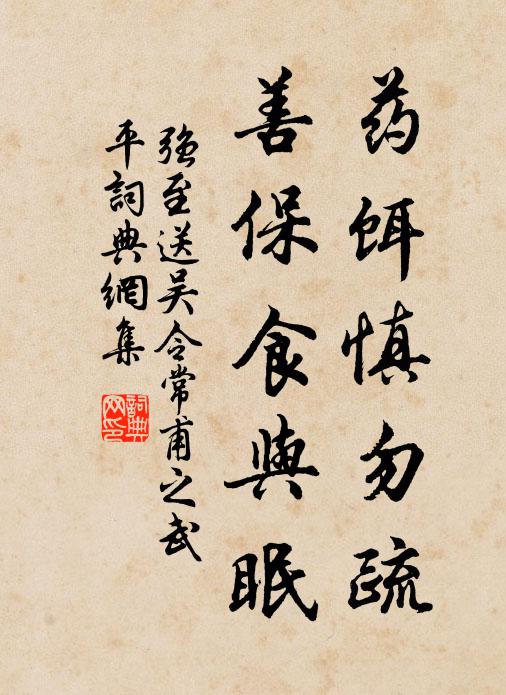 药餌慎勿疏
善保食與眠
强至送吴令常甫之武
平詞典網集
詞典网印